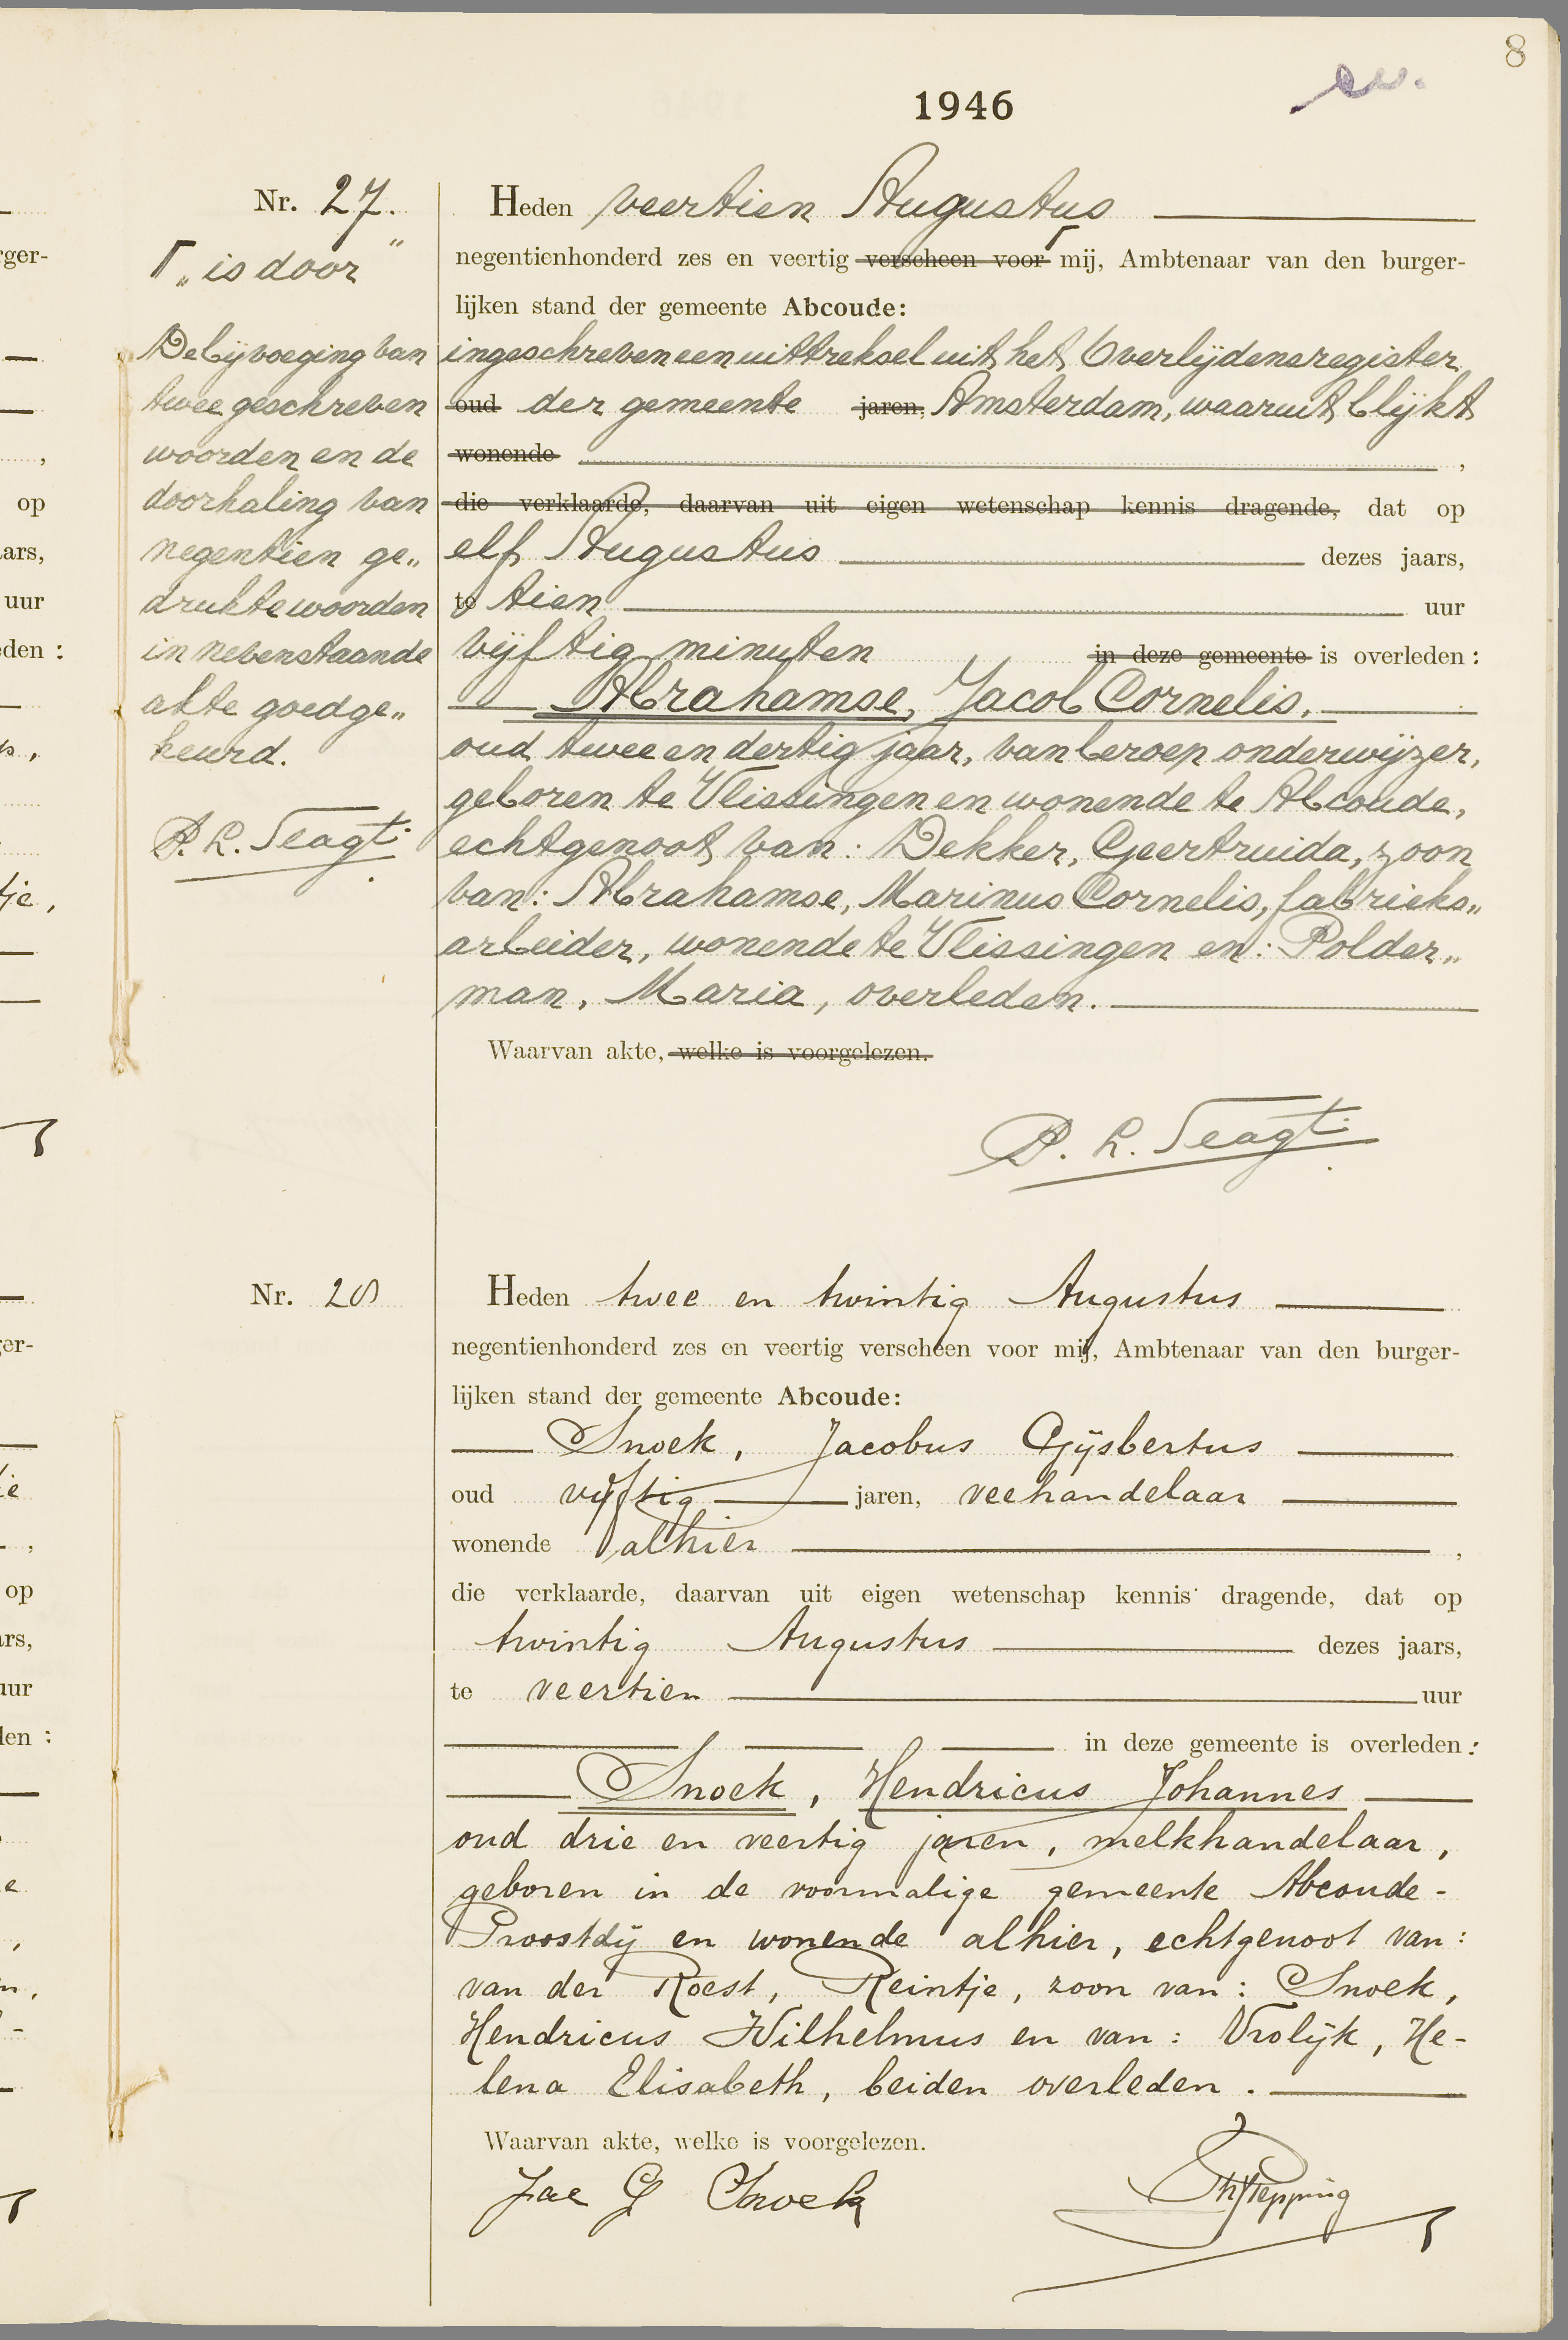 8
1946
Nr. 27.
Γ „is door"
De bijvoeging van
twee geschreven
woorden en de
doorhaling van
negentien ge„
drukte woorden
in nevenstaande
akte goedge„
keurd.
Heden veertien Augustus
negentienhonderd zes en veertig verscheen voor Γ mij, Ambtenaar van den burger-
lijken stand der gemeente Abcoude:
ingeschreven een uittreksel uit het Overlijdensregister
oud der gemeente jaren, Amsterdam, waaruit blijkt
wonende ,
die verklaarde, daarvan uit eigen wetenschap kennis dragende, dat op
elf Augustus dezes jaars,
te tien uur
vijftig minuten in deze gemeente is overleden:
Abrahamse, Jacob Cornelis,
oud twee en dertig jaar, van beroep onderwijzer,
geboren te Vlissingen en wonende te Abcoude,
echtgenoot van: Dekker, Geertruida, zoon
van: Abrahamse, Marinus Cornelis, fabrieks„
arbeider, wonende te Vlissingen en: Polder„
man, Maria, overleden.
Waarvan akte, welke is voorgelezen.
Nr. 28
Heden twee en twintig Augustus
negentienhonderd zes en veertig verscheen voor mij, Ambtenaar van den burger-
lijken stand der gemeente Abcoude:
Snoek, Jacobus Gijsbertus
oud vijftig jaren, veehandelaar
wonende alhier ,
die verklaarde, daarvan uit eigen wetenschap kennis dragende, dat op
twintig Augustus dezes jaars,
te veertien uur
in deze gemeente is overleden:
Snoek, Hendricus Johannes
oud drie en veertig jaren, melkhandelaar,
geboren in de voormalige gemeente Abcoude-
Proostdij en wonende alhier, echtgenoot van:
van der Roest, Reintje, zoon van: Snoek,
Hendricus Wilhelmus en van: Vrolijk, He-
lena Elisabeth, beiden overleden.
Waarvan akte, welke is voorgelezen.
Jac G Snoek